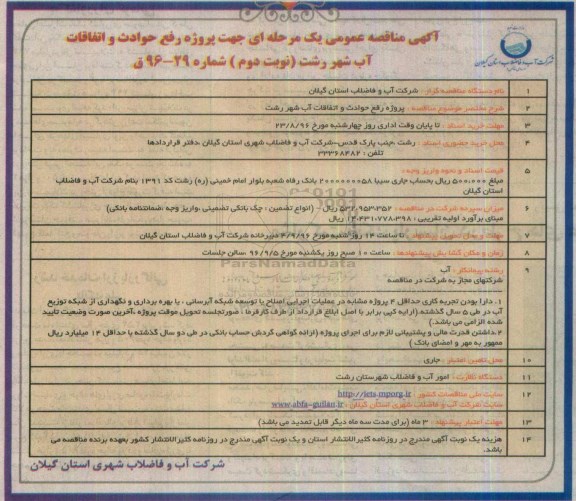 آگهی مناقصه عمومی یک مرحله ای جهت پروژه رفع حوادث و اتفاقات
آب شهر رشت (نوبت دوم) شماره ۲۹-۹۶ ق
شرکت آب و فاضلاب استان گیلان
۱ نام دستگاه مناقصه گزار: شرکت آب و فاضلاب استان گیلان
۲ شرح مختصر موضوع مناقصه: پروژه رفع حوادث و اتفاقات آب شهر رشت
۳ مهلت خرید اسناد: تا پایان وقت اداری روز چهارشنبه مورخ ۲۳/۸/۹۶
۴ محل خرید حضوری اسناد: رشت -جنب پارک قدس-شرکت آب و فاضلاب شهری استان گیلان ،دفتر قراردادها
تلفن: ۳۳۳۶۸۴۸۲
۵ قیمت اسناد و نحوه واریز وجه:
مبلغ ۵۰۰،۰۰۰ ریال بحساب جاری سیبا ۲۰۰۰۰۰۰۰۵۸ بانک رفاه شعبه بلوار امام خمینی (ره) رشت کد ۱۳۹۱ بنام شرکت آب و فاضلاب
استان گیلان
۶ میزان سپرده شرکت در مناقصه: ۵۳۲،۹۵۳،۳۵۲ ریال - (انواع تضمین: چک بانکی تضمینی ،واریز وجه ،ضمانتنامه بانکی)
مبنای برآورد اولیه تقریبی: ۱۴،۴۳۱،۷۷۸،۳۹۸ ریال
۷ مهلت و محل تحویل پیشنهاد: تا ساعت ۱۴ روز شنبه مورخ ۴/۹/۹۶ دبیرخانه شرکت آب و فاضلاب استان گیلان
۸ زمان و مکان گشایش پیشنهادها: ساعت ۱۰ صبح روز یکشنبه مورخ ۹۶/۹/۵ ،سالن جلسات
۹ رشته پیمانکار: آب
شرکتهای مجاز به شرکت در مناقصه
۱. دارا بودن تجربه کاری حداقل ۲ پروژه مشابه در عملیات اجرایی اصلاح یا توسعه شبکه آبرسانی ، یا بهره برداری و نگهداری از شبکه توزیع
آب در طی ۵ سال گذشته (ارایه کپی برابر با اصل ابلاغ قرارداد از طرف کارفرما ، صورتجلسه تحویل موقت پروژه ،آخرین صورت وضعیت تایید
شده الزامی می باشد.)
۲.داشتن قدرت مالی و پشتیبانی لازم برای اجرای پروژه (ارائه گواهی گردش حساب بانکی در طی دو سال گذشته با حداقل ۱۴ میلیارد ریال
ممهور به مهر و امضای بانک)
۱۰ محل تامین اعتبار: جاری
۱۱ دستگاه نظارت: امور آب و فاضلاب شهرستان رشت
۱۲ سایت ملی مناقصات کشور: http://iets.mporg.ir
سایت شرکت آب و فاضلاب شهری استان گیلان: www.abfa-guilan.ir
۱۳ مهلت اعتبار پیشنهاد: ۳ ماه (برای مدت سه ماه دیگر قابل تمدید می باشد)
۱۴ هزینه یک نوبت آگهی مندرج در روزنامه کثیرالانتشار استان و یک نوبت آگهی مندرج در روزنامه کثیرالانتشار کشور بعهده برنده مناقصه می
باشد.
شرکت آب و فاضلاب شهری استان گیلان
ParsNamadData